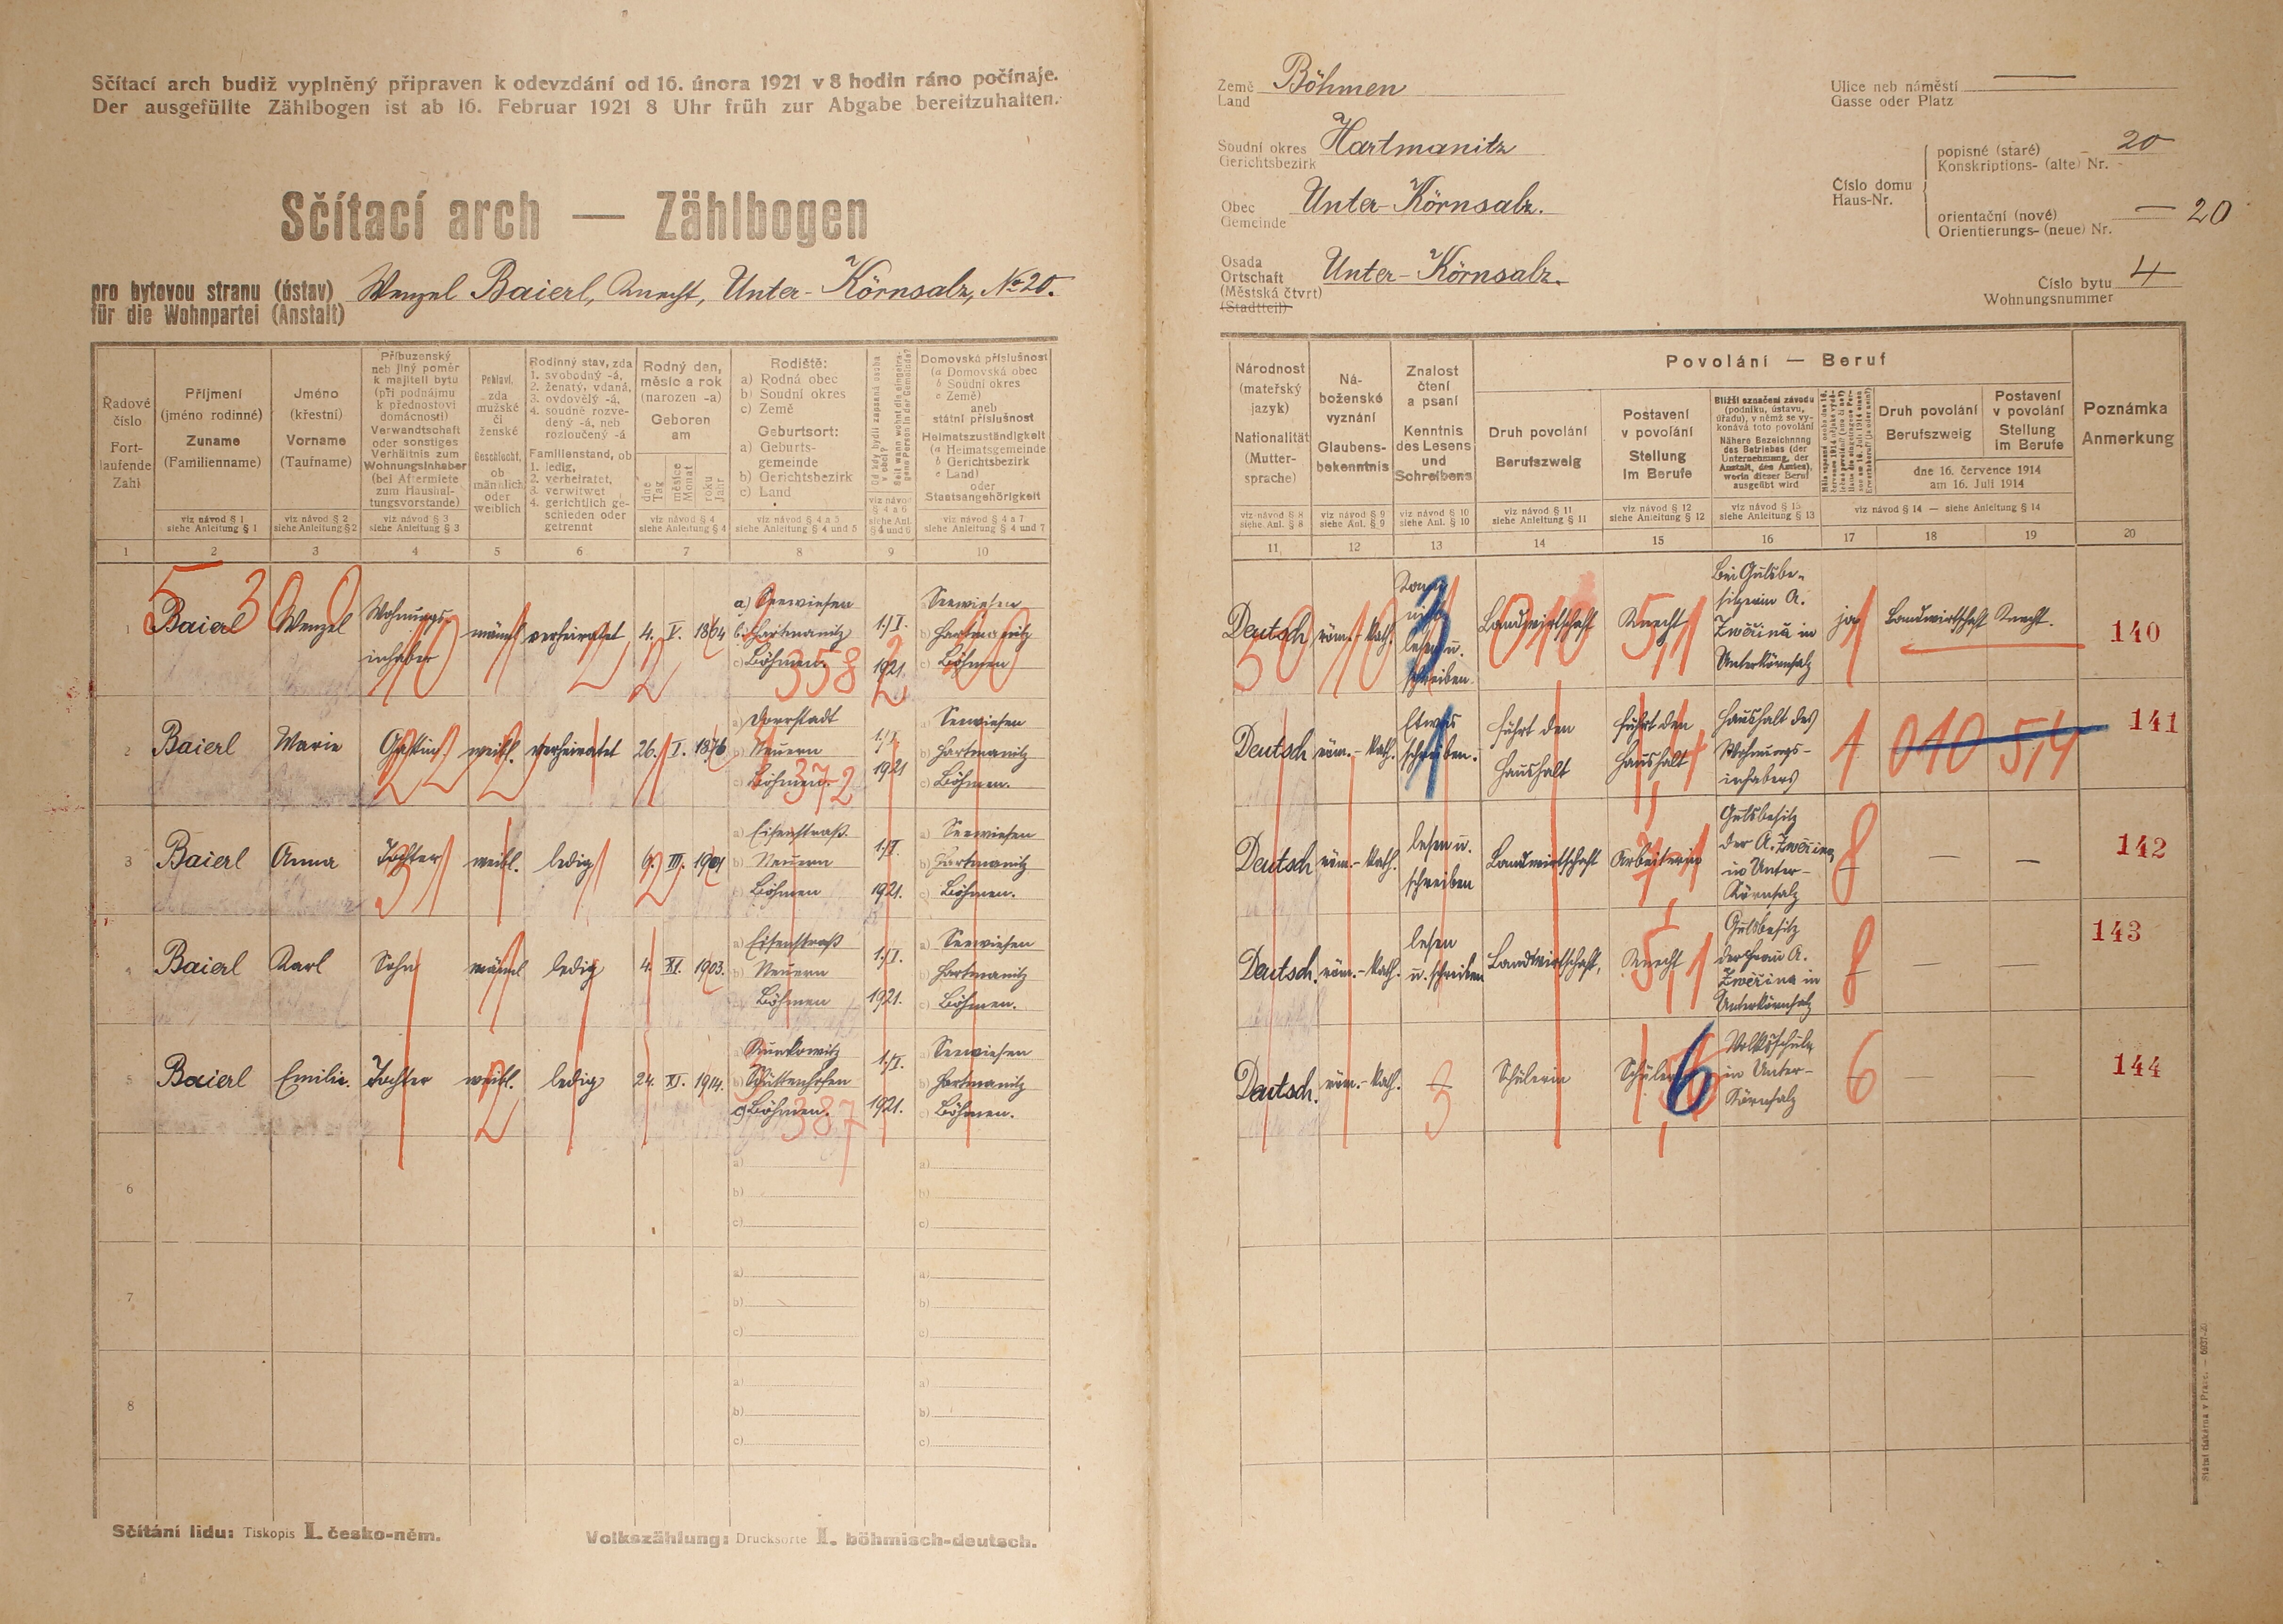 Sčítací arch budiž vyplněný připraven k odevzdání od 16. února 1921 v 8 hodin ráno počínaje.
Der ausgefüllte Zählbogen ist ab 16. Februar 1921 8 Uhr früh zur Abgabe bereitzuhalten.
Sčítací arch — Zählbogen
pro bytovou stranu (ústav)
für die Wohnpartei (Anstalt)
Wenzel Baierl, Knecht, Unter-Körnsalz, No 20.
Země
Land
Böhmen
Soudní okres
Gerichtsbezirk
Hartmanitz
Obec
Gemeinde
Unter-Körnsalz.
Osada
Ortschaft
(Městská čtvrt)
(Stadtteil)
Unter-Körnsalz.
Ulice neb náměstí —
Gasse oder Platz
Číslo domu
Haus-Nr.
popisné (staré)
Konskriptions- (alte) Nr.
20
orientační (nové)
Orientierungs- (neue) Nr.
— 20
Číslo bytu
Wohnungsnummer
4
Řadové číslo
Fortlaufende Zahl
Příjmení
(jméno rodinné)
Zuname
(Familienname)
viz návod § 1
siehe Anleitung § 1
Jméno
(křestní)
Vorname
(Taufname)
viz návod § 2
siehe Anleitung § 2
Příbuzenský
neb jiný poměr
k majiteli bytu
(při podnájmu
k přednostovi
domácnosti)
Verwandtschaft
oder sonstiges
Verhältnis zum
Wohnungsinhaber
(bei Aftermiete
zum Haushal-
tungsvorstande)
viz návod § 3
siehe Anleitung § 3
Pohlaví,
zda
mužské
či
ženské
Geschlecht,
ob
männlich
oder
weiblich
Rodinný stav, zda
1. svobodný -á,
2. ženatý, vdaná,
3. ovdovělý -á,
4. soudně rozve-
dený -á, neb
rozloučený -á
Familienstand, ob
1. ledig,
2. verheiratet,
3. verwitwet
4. gerichtlich ge-
schieden oder
getrennt
Rodný den,
měsíc a rok
(narozen -a)
Geboren
am
dne Tag
měsíce Monat
roku Jahr
viz návod § 4
siehe Anleitung § 4
Rodiště:
a) Rodná obec
b) Soudní okres
c) Země
Geburtsort:
a) Geburts-
gemeinde
b) Gerichtsbezirk
c) Land
viz návod § 4 a 5
siehe Anleitung § 4 und 5
Od kdy bydlí zapsaná osoba v obci?
Seit wann wohnt die eingetragene Person in der Gemeinde?
viz návod
§ 4 a 6
siehe Anl.
§ 4 und 6
Domovská příslušnost
(a Domovská obec
b Soudní okres
c Země)
aneb
státní příslušnost
Heimatszuständigkeit
(a Heimatsgemeinde
b Gerichtsbezirk
c Land)
oder
Staatsangehörigkeit
viz návod § 4 a 7
siehe Anleitung § 4 und 7
Národnost
(mateřský
jazyk)
Nationalität
(Mutter-
sprache)
viz návod § 8
siehe Anl. § 8
Ná-
boženské
vyznání
Glaubens-
bekenntnis
viz návod § 9
siehe Anl. § 9
Znalost
čtení
a psaní
Kenntnis
des Lesens
und
Schreibens
viz návod § 10
siehe Anl. § 10
Povolání — Beruf
Druh povolání
Berufszweig
viz návod § 11
siehe Anleitung § 11
Postavení
v povolání
Stellung
im Berufe
viz návod § 12
siehe Anleitung § 12
Bližší označení závodu
(podniku, ústavu,
úřadu), v němž se vy-
konává toto povolání
Nähere Bezeichnung
des Betriebes (der
Unternehmung, der
Anstalt, des Amtes),
worin dieser Beruf
ausgeübt wird
viz návod § 13
siehe Anleitung § 13
Druh povolání
Berufszweig
Postavení
v povolání
Stellung
im Berufe
dne 16. července 1914
am 16. Juli 1914
viz návod § 14 — siehe Anleitung § 14
Poznámka
Anmerkung
1 2 3 4 5 6 7 8 9 10
11 12 13 14 15 16 17 18 19 20
1 Baierl Wenzel Wohnungsinhaber männl verheiratet 4. V. 1864 a) Seewiesen b) Hartmanitz c) Böhmen. 1./I. 1921 Seewiesen Hartmanitz Böhmen
5 300 10 1 2 2 358 2 00
Deutsch röm.-kath. kann nicht lesen u. schreiben. Landwirtschaft Knecht Bei Gutsbesitzerin A. Zwěřina in Unterkörnsalz ja Landwirtschaft Knecht. 140
30 10 3 010 5,1 1
2 Baierl Marie Gattin weibl. verheiratet 26. I. 1876 Dorrstadt Neuern Böhmen. 1./I. 1921 Seewiesen Hartmanitz Böhmen.
372
Deutsch röm.-kath. Etwas schreiben. führt den Haushalt führt den Haushalt Haushalt des Wohnungsinhabers 1 010 5,4 141
3 Baierl Anna Tochter weibl. ledig 6. III. 1901 Eisenstraß. Neuern Böhmen 1./I. 1921. Seewiesen Hartmanitz Böhmen.
Deutsch röm.-kath. lesen u. schreiben Landwirtschaft Arbeiterin Gutsbesitz der A. Zwěřina in Unter-Körnsalz 8 — — 142
4 Baierl Karl Sohn männl ledig 4. XI. 1903. Eisenstraß Neuern Böhmen 1./I. 1921. Seewiesen Hartmanitz Böhmen.
Deutsch. röm.-kath. lesen u. schreiben Landwirtschaft, Knecht 5,1 Gutsbesitz der Frau A. Zwěřina in Unterkörnsalz 8 — — 143
5 Baierl Emilie. Tochter weibl. ledig 24. XI. 1914. Kunkowitz Schüttenhofen c) Böhmen. 1./I. 1921. Seewiesen Hartmanitz Böhmen.
2 387
Deutsch. röm.-kath. — 3 Schülerin Schülerin 6 Volksschule in Unter-Körnsalz 6 — — 144
6
7
8
Sčítání lidu: Tiskopis I. česko-něm.
Volkszählung: Drucksorte I. böhmisch-deutsch.
Státní tiskárna v Praze. — 6937-20